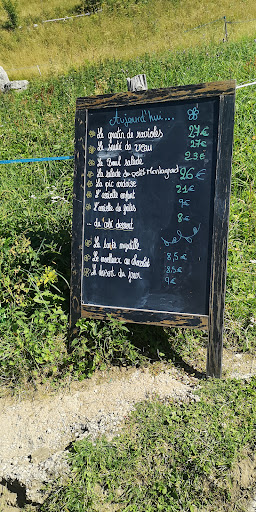 Aujourd'hui...
Le gratin de ravioles 27€
Le sauté de veau 27€
Le Bowl salade 23€
La salade du petit Montagnard 26€
La pic ardoise 21€
L'assiette enfant 9€
L'assiette de frites 8€
_ du côté dessert _
La tarte myrtille 8,5€
Le moelleux au chocolat 8,5€
Le dessert du jour 9€